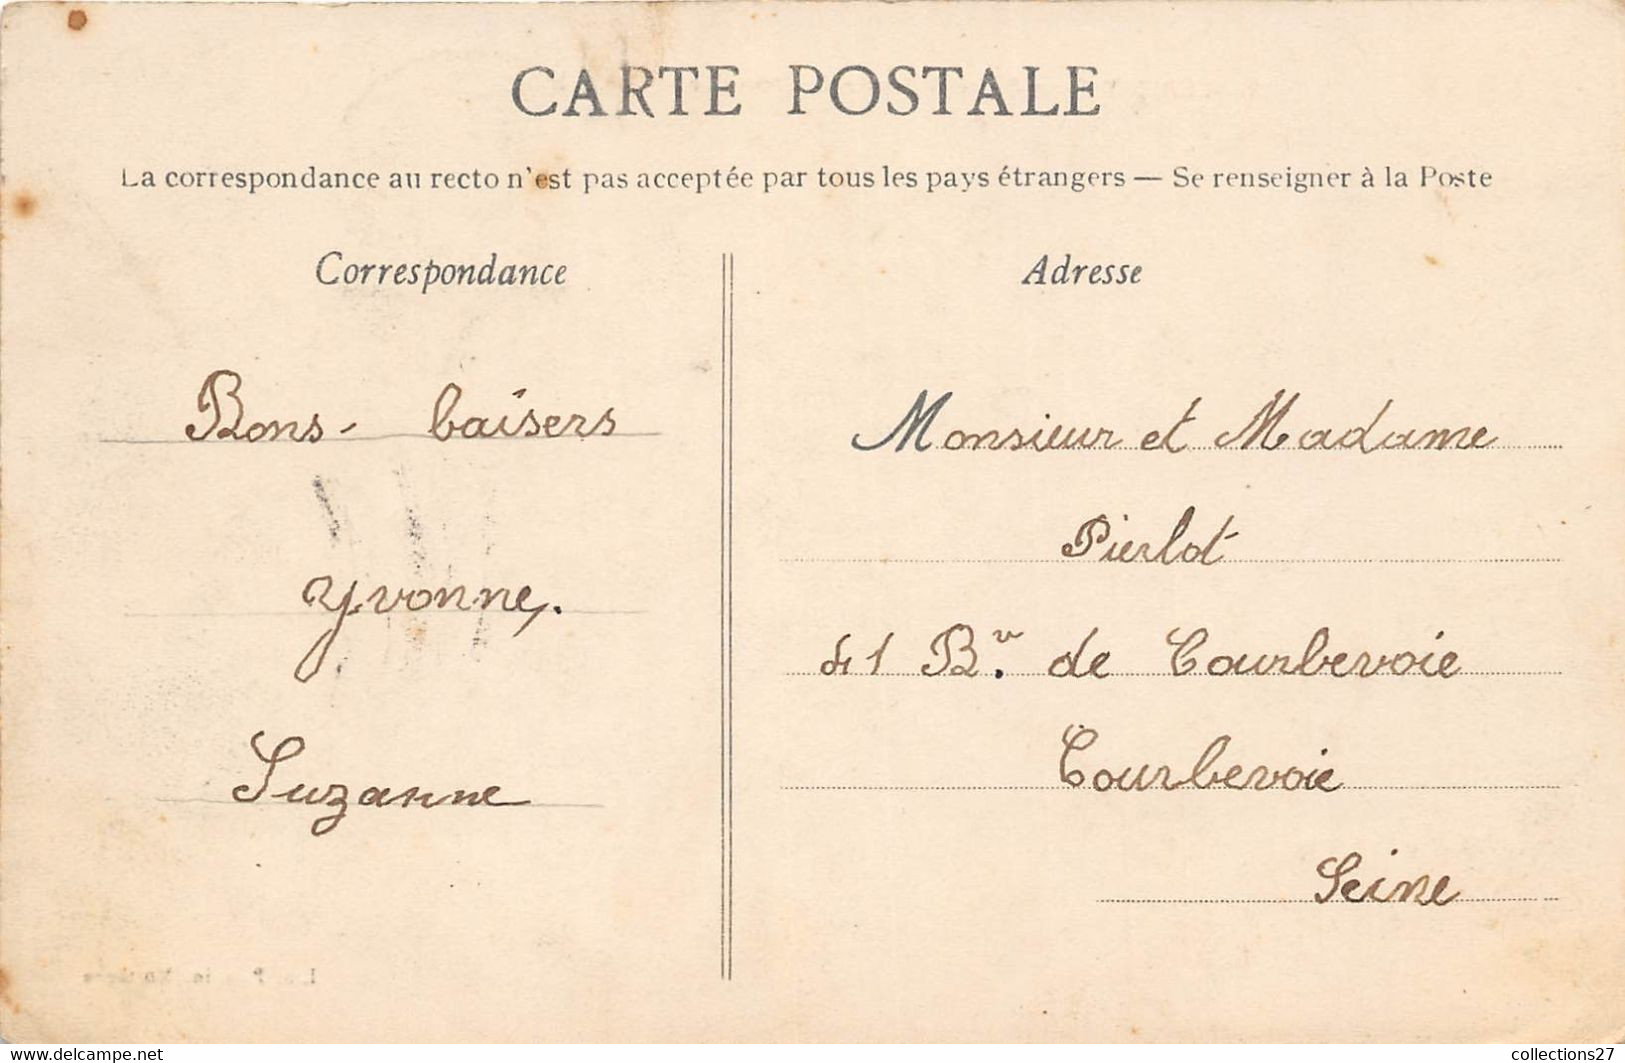 CARTE POSTALE
La correspondance au recto n'est pas acceptée par tous les pays étrangers — Se renseigner à la Poste
Correspondance
Bons - baisers
Yvonne.
Suzanne
Adresse
Monsieur et Madame
Pierlot
41 Bᵛ. de Courbevoie
Courbevoie
Seine
https://www.delcampe.net
collections27